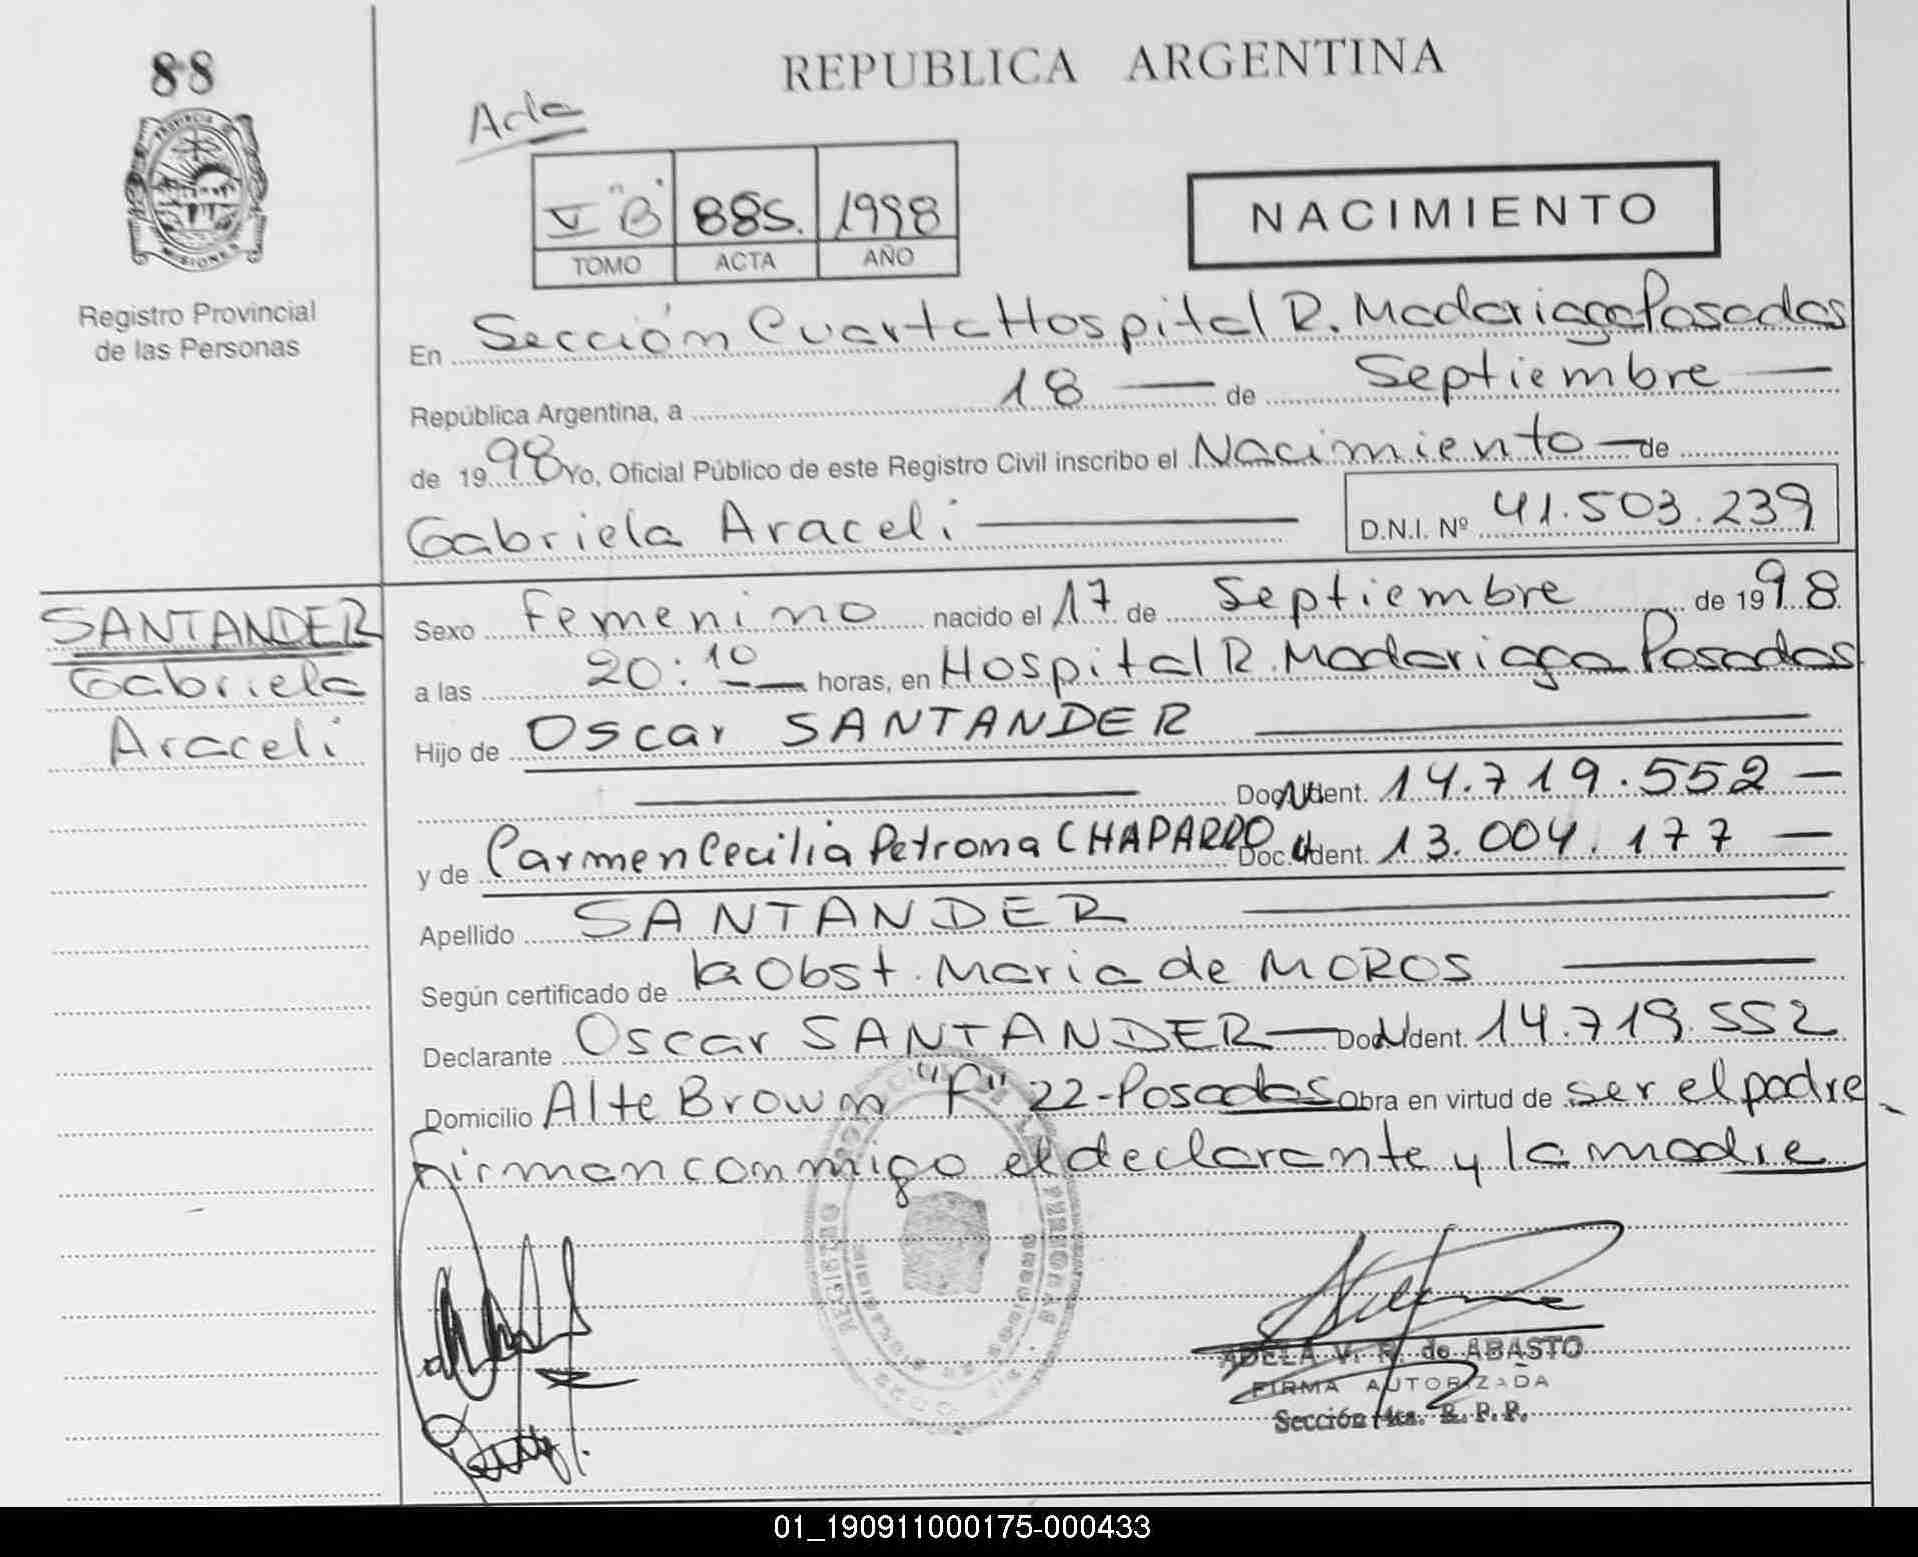 88
REPUBLICA ARGENTINA
Acta
V "B" 885. 1998
TOMO ACTA AÑO
NACIMIENTO
PROVINCIA DE
MISIONES
Registro Provincial
de las Personas
En Sección Cuarta Hospital R. Madariaga Posadas
República Argentina, a 18 — de Septiembre —
de 1998 Yo, Oficial Público de este Registro Civil inscribo el Nacimiento — de
Gabriela Araceli — D.N.I. Nº 41.503.239
SANTANDER
Gabriela
Araceli
Sexo Femenino nacido el 17 de Septiembre de 1998
a las 20:10 — horas, en Hospital R. Madariaga Posadas
Hijo de Oscar SANTANDER —
— Doc. Ident. 14.719.552 —
y de Carmen Cecilia Petrona CHAPARRO Doc. Ident. 13.004.177 —
Apellido SANTANDER —
Según certificado de la Obst. Maria de MOROS —
Declarante Oscar SANTANDER — Doc. Ident. 14.719.552
Domicilio Alte Brown "F" 22-Posadas Obra en virtud de ser el padre
Firman conmigo el declarante y la madre
ADELA V. R. de ABASTO
FIRMA AUTORIZADA
Sección 4ta. R. P. P.
01_190911000175-000433